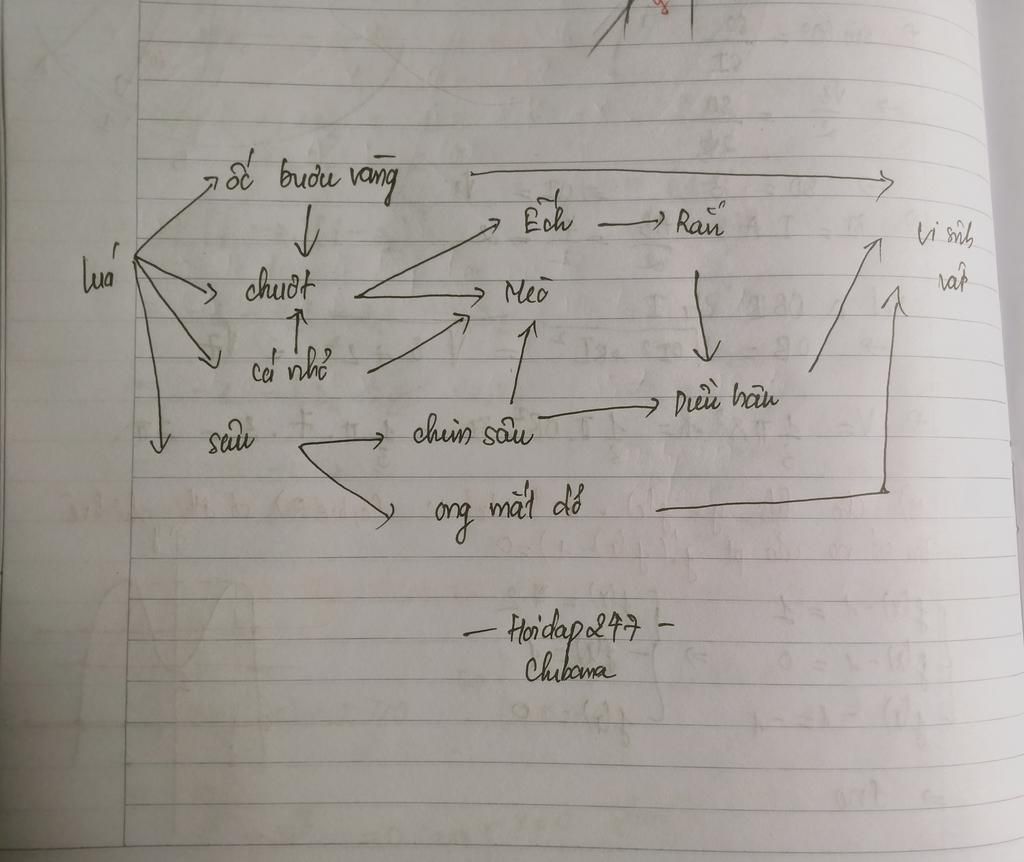 ốc bươu vàng
Ếch
Rắn
Vi sinh
vật
lúa
chuột
Mèo
cá nhỏ
Diều hâu
sâu
chim sâu
ong mắt đỏ
- Hoidap247 -
Chibana